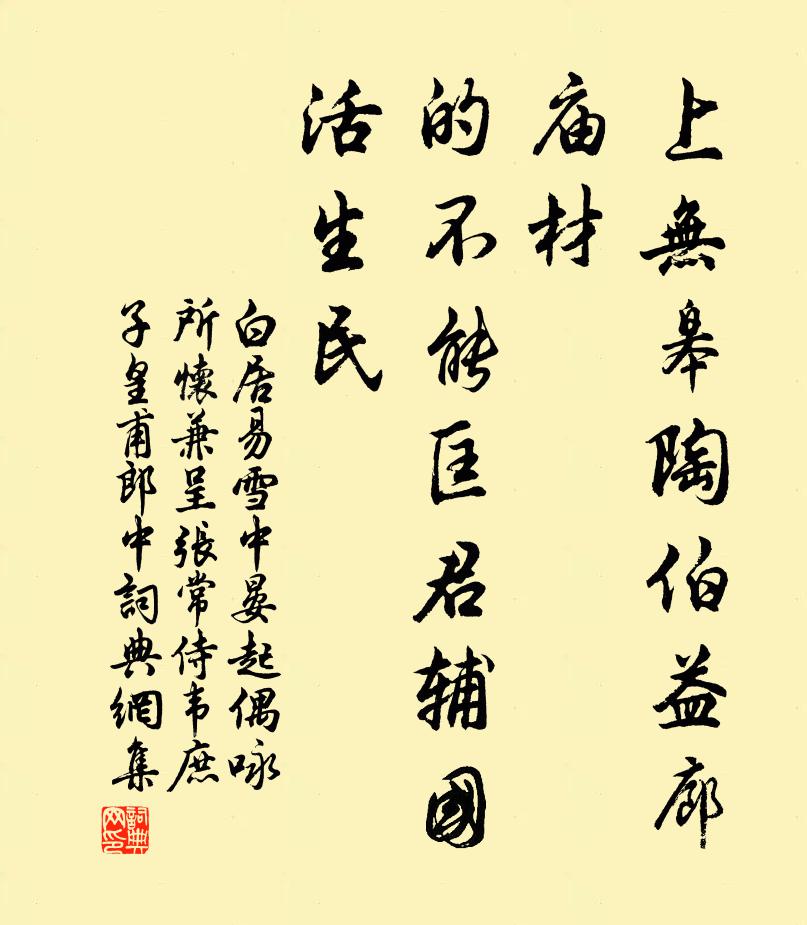 上無皋陶伯益廊
庙材
的不能匡君辅國
活生民
白居易雪中晏起偶咏
所懷兼呈張常侍韦庶
子皇甫郎中詞典網集
詞典
网印